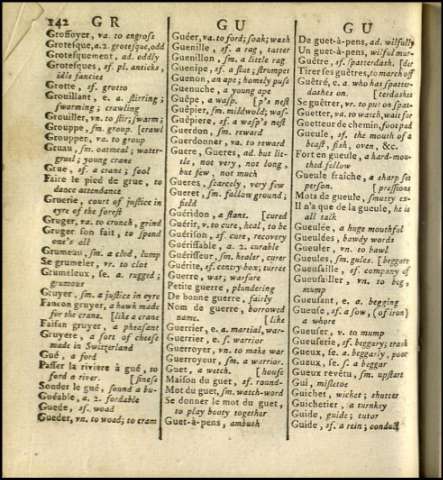 142 GR GU GU
Groffoyer, va. to engross
Grotesque, a.2. grotesque, odd
Grotesquement, ad. oddly
Grotesques, sf. pl. anticks,
idle fancies
Grotte, sf. grotto
Grouillant, e. a. stirring;
swarming; crawling
Grouiller, vn. to stir; swarm;
Grouppe, sm. group. [crawl
Groupper, va. to group
Gruau, sm. oatmeal; water-
gruel; young crane
Grue, sf. a crane; fool
Faire le pied de grue, to
dance attendance
Gruerie, court of justice in
eyre of the forest
Gruger, va. to crunch, grind
Gruger son fait, to spend
one's all
Grumeau, sm. a clod, lump
Se grumeler, vr. to clot
Grumeleux, se. a. rugged;
grumous
Gruyer, sm. a justice in eyre
Faucon gruyer, a hawk made
for the crane. [like a crane
Faisan gruyer, a pheasant
Gruyere, a sort of cheese
made in Switzerland
Gué, a ford
Passer la riviere à gué, to
ford a river. [siness
Sonder le gué, sound a bu-
Guéable, a. 2. fordable
Guede, sf. woad
Gueder, vn. to woad; to cram
Guéer, va. to ford; soak; wash
Guenille, sf. a rag, tatter
Guenillon, sm. a little rag
Guenipe, sf. a slut; strumpet
Guenon, an ape; homely puss
Guenuche, a young ape
Guêpe, a wasp. [p's nest
Guêpier, sm. mildwold; was-
Guêpiere, sf. a wasp's nest
Guerdon, sm. reward
Guerdonner, va. to reward
Guere, Gueres, ad. but lit-
tle, not very, not long,
but few, not much
Gueres, scarcely, very few
Gueret, sm. fallow ground;
field
Guéridon, a stant. [cured
Guérir, v. to cure, heal, to be
Guérison, sf. cure, recovery
Guérissable, a. 2. curable
Guérisseur, sm. healer, curer
Guérite, sf. centry box; turret
Guerre, war; warfare
Petite guerre, plundering
De bonne guerre, fairly
Nom de guerre, borrowed
name. [like
Guerrier, e. a. martial, war-
Guerrier, e. s. warrior
Guerroyer, vn. to make war
Guerroyeur, sm. a warrior.
Guet, a watch. [house
Maison du guet, sf. round-
Mot du guet, sm. watch-word
Se donner le mot du guet,
to play booty together
Guet-à-pens, ambush
De guet-à-pens, ad. wilfully
Un guet-à-pens, wilful mur-
Guêtre, sf. spatterdash. [der
Tirer ses guêtres, to march off
Guêtré, e. a. who has spatter-
dashes on. [terdashes
Se guêtrer, vr. to put on spat-
Guetter, va. to watch, wait for
Guetteur de chemin, footpad
Gueule, sf. the mouth of a
beast, fish, oven, &c.
Fort en gueule, a hard-mou-
thed fellow
Gueule fraîche, a sharp set
person. [pressions
Mots de gueule, smutty ex-
Il n'a que de la gueule, he is
all talk
Gueulée, a huge mouthful
Gueulées, bawdy words
Gueuler, vn. to bawl
Gueules, sm. gules. [beggars
Gueusaille, sf. company of
Gueusailler, vn. to beg,
mump
Gueusant, e. a. begging
Gueuse, sf. a sow, (of iron)
a whore
Gueuser, v. to mump
Gueuserie, sf. beggary; trash
Gueux, se. a. beggarly, poor
Gueux, se. s. a beggar
Gueux revêtu, sm. upstart
Gui, misletoe
Guichet, wicket; shutter
Guichetier, a turnkey
Guide, guide; tutor
Guide, sf. a rein; conduct